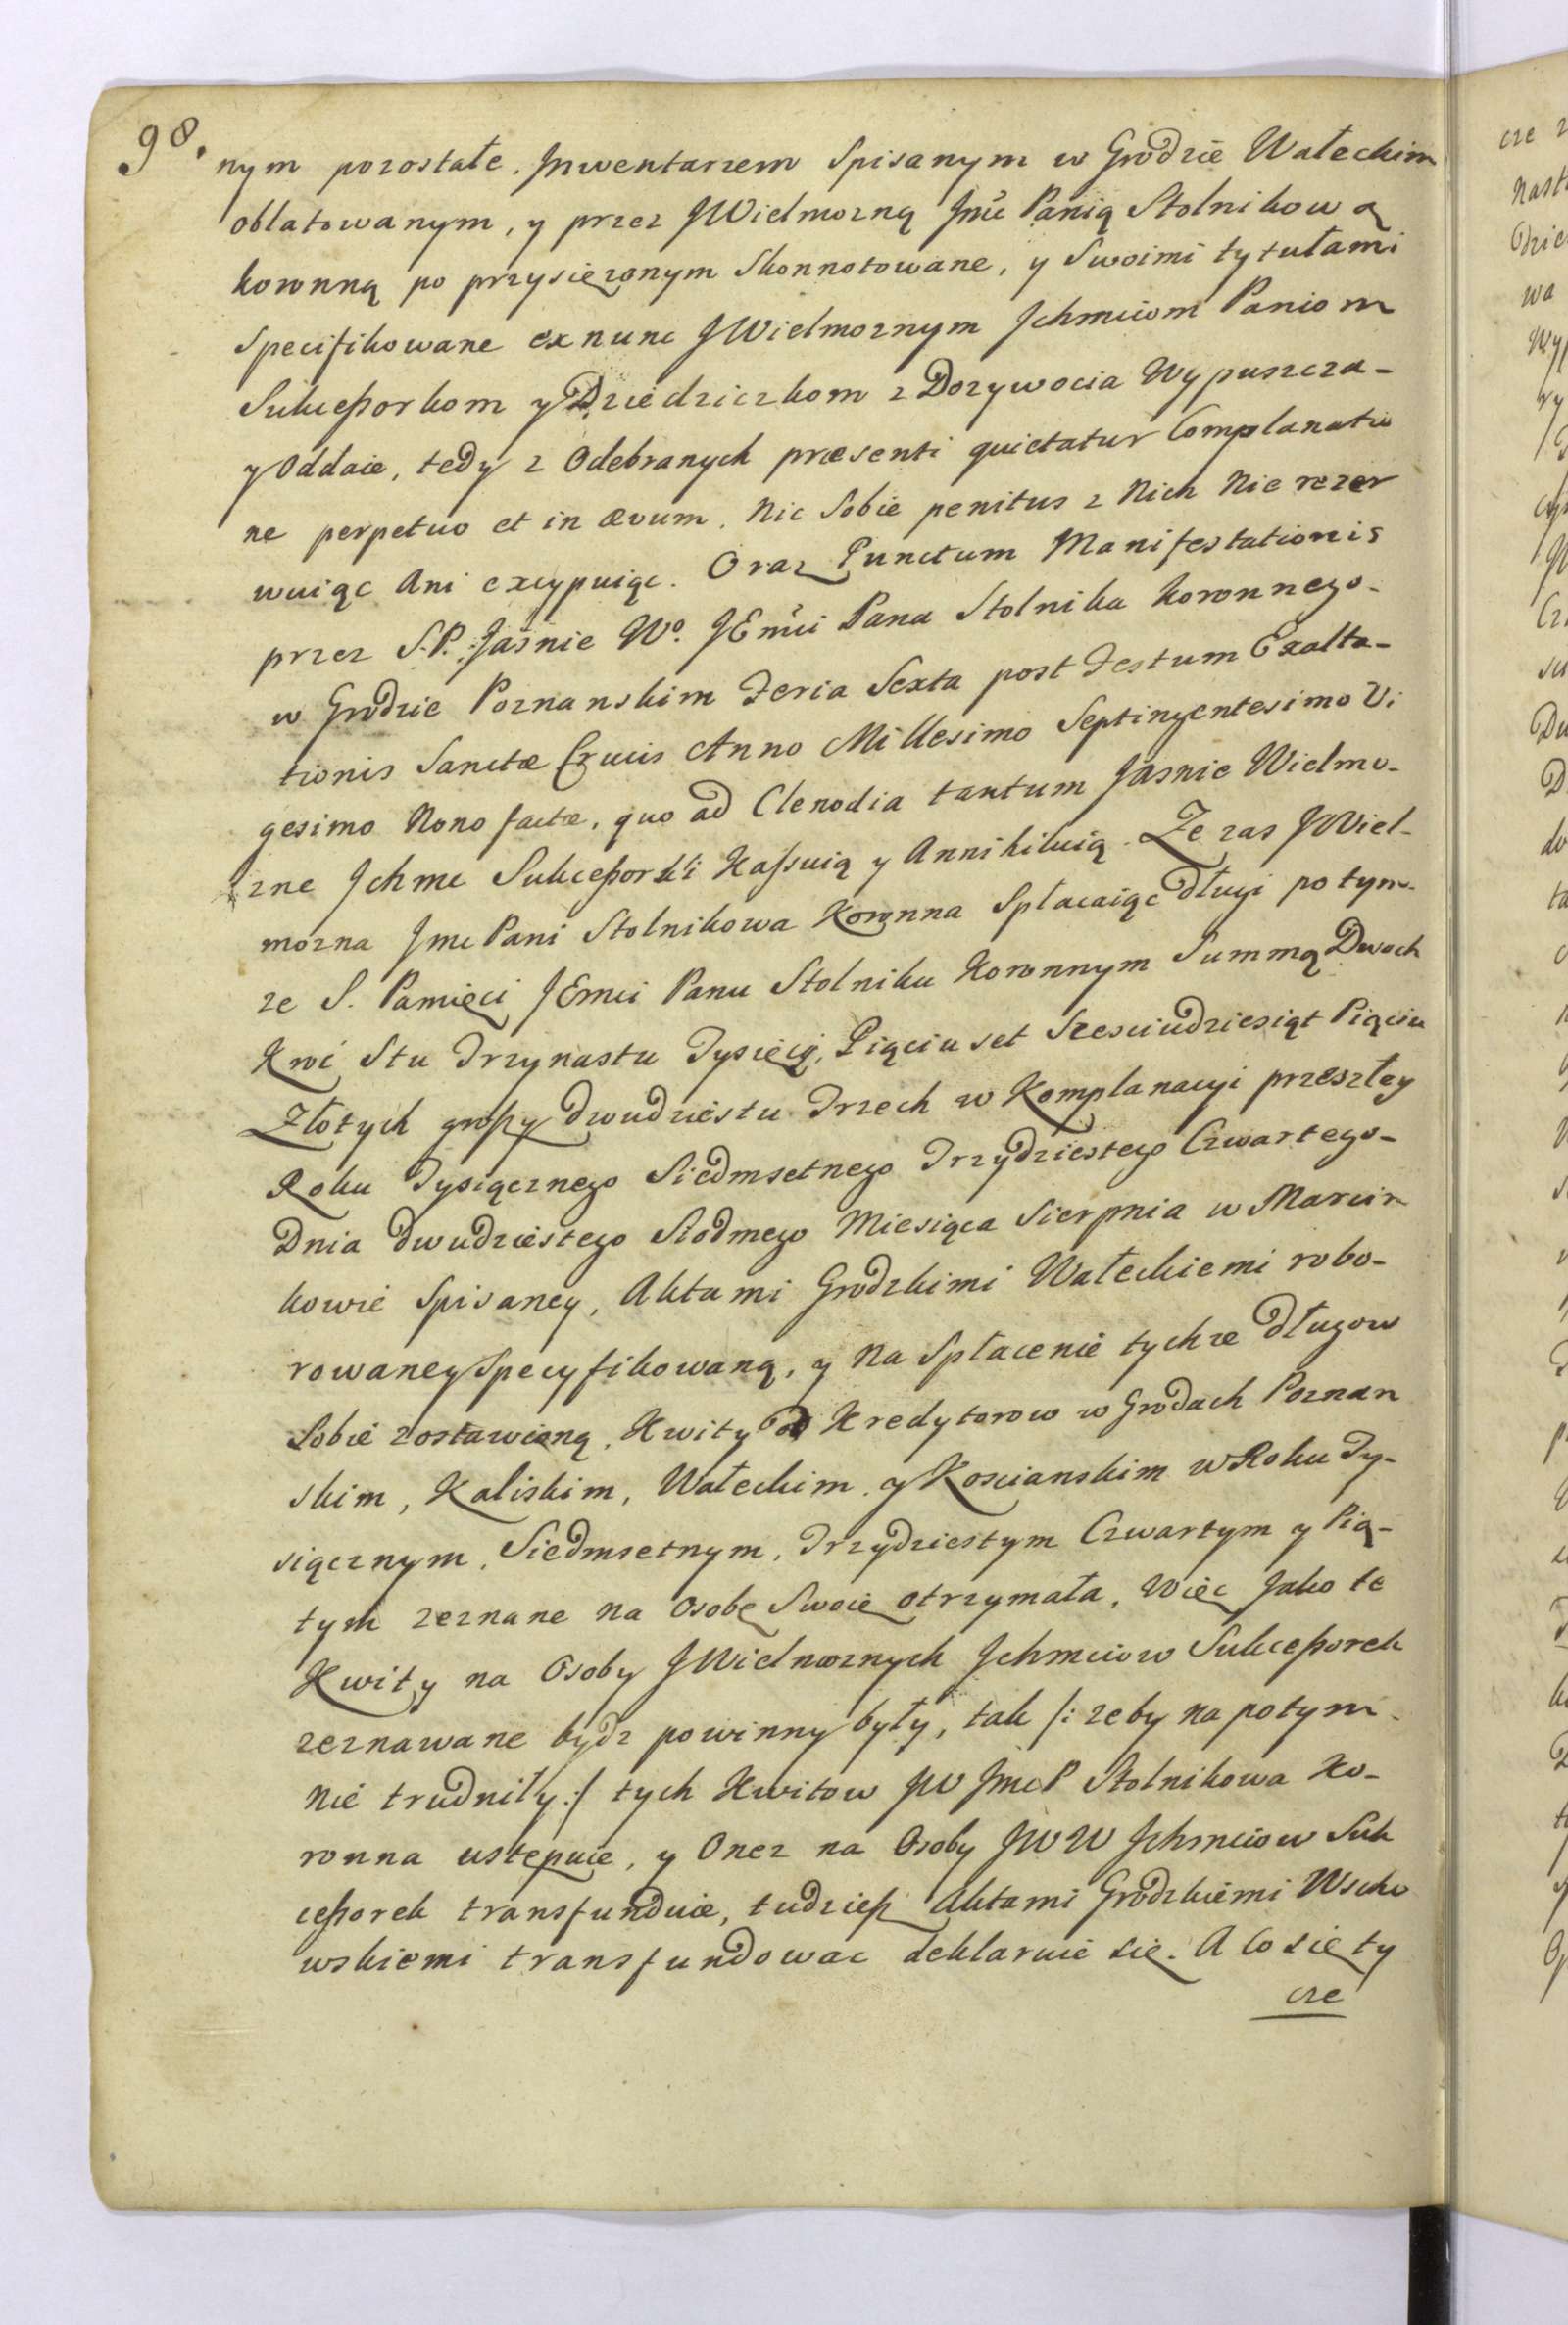 98.
nym pozostałe. Inwentarzem Spisanym w Grodzie Wałeckim
oblatowanym, y przez JWielmozną Jmć Panią Stolnikową
koronną po przysięzonym Skonnotowane, y Swoimi tytułami
Specifikowane ex nunc JWielmoznym Ichmciom Paniom
Sukceßorkom y Dziedziczkom z Dozywocia Wypuszcza-
y Oddaie, tedy z Odebranych præsenti quietatur Complanatio
ne perpetuo et in ævum. Nic Sobie penitus z Nich Nie rezer
wuiąc Ani excypuiąc. Oraz Punctum Manifestationis
przez S.P. Jaśnie Wo. JEmći Pana Stolnika Koronnego-
w Grodzie Poznanskim Feria Sexta post Festum Exalta-
tionis Sanctæ Crucis Anno Millesimo Septingentesimo Vi
gesimo Nono factæ, quo ad Clenodia tantum Jasnie Wielmo-
zne Ichmc Sukceßorki Kaſsuią y Annihiluią. Ze zas JWiel-
mozna Jmc Pani Stolnikowa Koronna Spłacaiąc długi po tym-
ze S. Pamięci JEmci Panu Stolniku Koronnym Summą Dwoch
Kroć Stu Trzynastu Tysięcy, Piąciu set Szesciudziesiąt Piąciu
Złotych groszy dwudziestu Trzech w Komplanacyi przeszłey
Roku Tysiącznego Siedmsetnego Trzydziestego Czwartego-
Dnia dwudziestego Siodmego Miesiąca Sierpnia w Marcin
kowie Spisaney, Aktami Grodzkimi Wałeckiemi robo-
rowaney Specyfikowaną, y na Spłacenie tychze długow
Sobie zostawioną. Kwity od Kredytorow w Grodach Poznan
skim, Kaliskim, Wałeckim, y Koscianskim w Roku Ty-
siącznym, Siedmsetnym, Trzydziestym Czwartym y Pią-
tym zeznane na Osobę Swoię otrzymała, Więc Jako te
Kwity na Osoby JWielmoznych Ichmciow Sukceßorek
zeznawane bydz powinny były, tak /: zeby na potym-
Nie trudniły :/ tych Kwitow JW JmcP Stolnikowa Ko-
ronna ustępuie, y Onez na Osoby JWW Ichmciow Suk
ceßorek transfunduie, tudzieß Aktami Grodzkiemi Wscho
wskiemi transfundowac deklaruie się. A Co się ty
cze